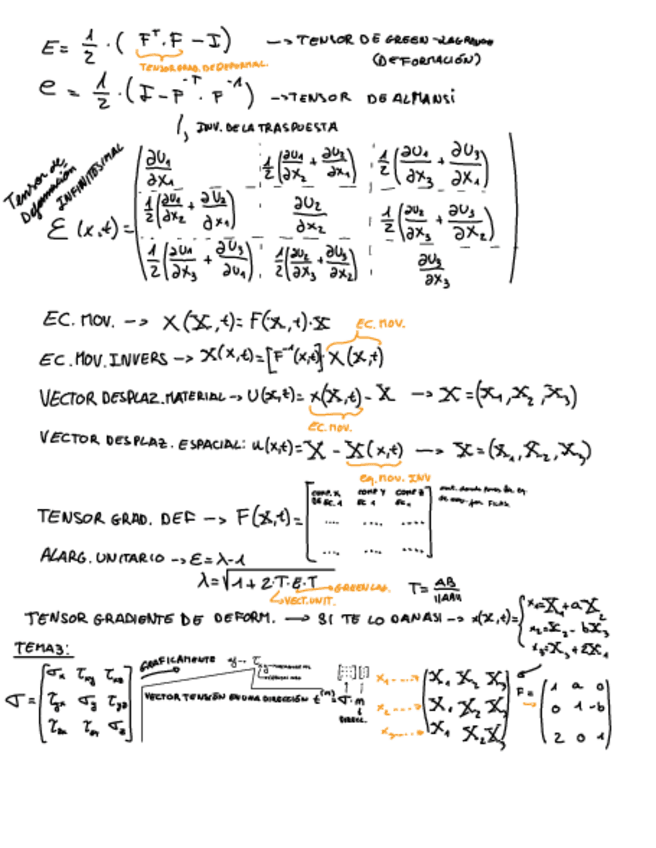 E = 1/2 · ( Fᵀ·F − I ) → TENSOR DE GREEN-LAGRANGE
TENSOR GRAD. DE DEFORMAC. (DEFORMACIÓN)
e = 1/2 · ( I − F⁻ᵀ · F⁻¹ ) → TENSOR DE ALMANSI
INV. DE LA TRASPUESTA
Tensor de Deformación INFINITESIMAL
∂U₁/∂X₁ 1/2(∂U₁/∂X₂ + ∂U₂/∂X₁) 1/2(∂U₁/∂X₃ + ∂U₃/∂X₁)
ε(x,t) = 1/2(∂U₁/∂X₂ + ∂U₂/∂X₁) ∂U₂/∂X₂ 1/2(∂U₂/∂X₃ + ∂U₃/∂X₂)
1/2(∂U₁/∂X₃ + ∂U₃/∂U₁) 1/2(∂U₂/∂X₃ + ∂U₃/∂X₂) ∂U₃/∂X₃
EC. MOV. → x(X,t) = F(X,t)·X
EC. MOV.
EC. MOV. INVERS → X(x,t) = [F⁻¹(x,t)]·x(X,t)
VECTOR DESPLAZ. MATERIAL → U(X,t) = x(X,t) − X → X = (X₁, X₂, X₃)
EC. MOV.
VECTOR DESPLAZ. ESPACIAL: u(x,t) = X − X(x,t) → X = (X₁, X₂, X₃)
eq. mov. INV
COMP. X DE EC. 1 COMP Y EC 1 COMP Z EC.
TENSOR GRAD. DEF → F(X,t) = .... .... ....
.... .... ....
ALARG. UNITARIO → ε = λ−1
λ = √(1 + 2·T·E·T) GREEN LAG. T = AB/||AB||
VECT. UNIT.
TENSOR GRADIENTE DE DEFORM. → SI TE LO DAN ASI → x(X,t) = x₁ = X₁ + aX₂
x₂ = X₂ − bX₃
x₃ = X₃ + 2X₁
TEMA 3:
σ = σx τxy τxz
τyx σy τyz
τzx τzy σz
GRAFICAMENTE
VECTOR TENSIÓN EN UNA DIRECCIÓN t⁽ᵐ⁾ = σ·m
DIRECC.
x₁ ----> X₁ X₂ X₃
x₂ ----> X₁ X₂ X₃
x₃ ----> X₁ X₂ X₃
F = 1 a 0
0 1 −b
2 0 1